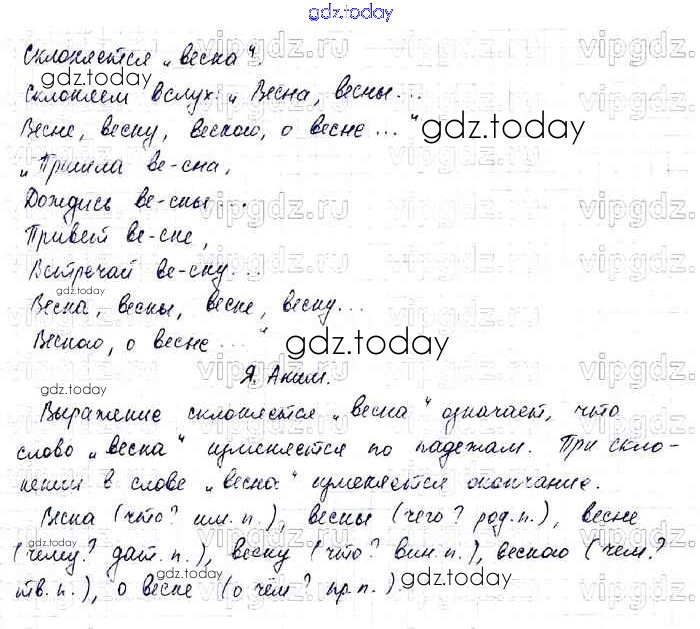 gdz.today
Склоняется „весна“.
gdz.today
Склоняем вслух: „Весна, весны...
Весне, весну, весною, о весне ...“ gdz.today
„Пришла ве-сна,
Дождись ве-сны...
Привет ве-сне,
Встречай ве-сну...
gdz.today
Весна, весны, весне, весну...
Весною, о весне ...“ gdz.today
gdz.today Я. Аким.
Выражение склоняется „весна“ означает, что
слово „весна“ изменяется по падежам. При скло-
нении в слове „весна“ изменяется окончание.
gdz.today
Весна (что? им. п.), весны (чего? род. п.), весне
(чему? дат. п.), весну (что? вин. п.), весною (чем?
gdz.today gdz.today
тв. п.), о весне (о чём? пр. п.).
vipgdz.ru